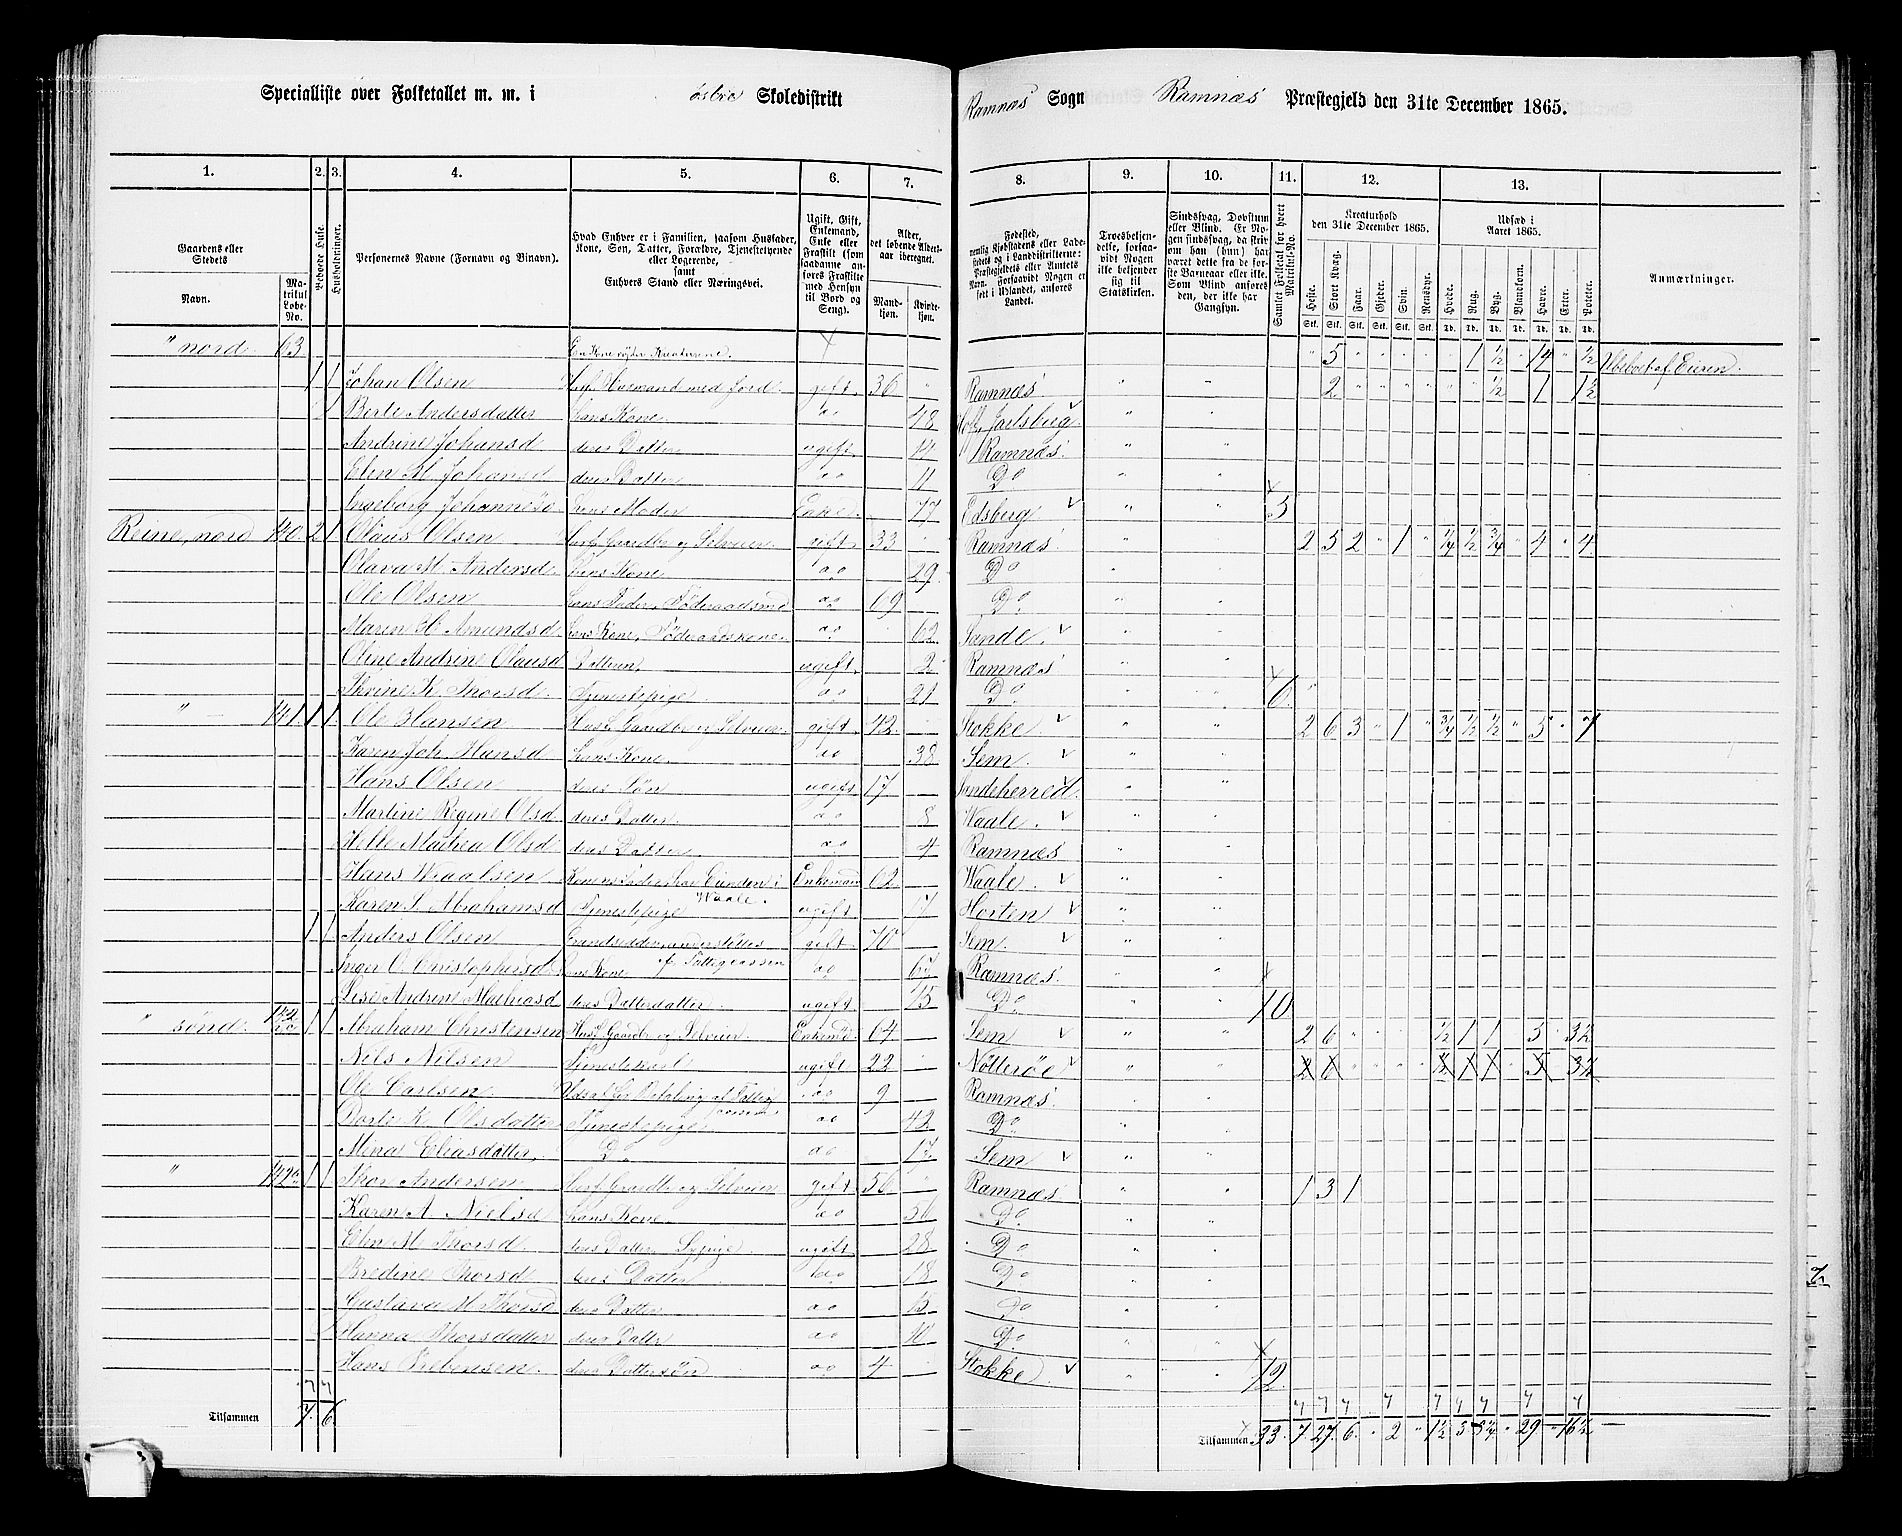 Specialliste over Folketallet m. m. i Skoledistrikt Ramnæs Sogn Ramnæs Præstegjeld den 31te December 1865.
1. 2. 3. 4. 5. 6. 7. 8. 9. 10. 11. 12. 13.
Gaardens eller Stedets Navn. Matrikul Løbe-No. Beboede Huse. Husholdninger. Personernes Navne (Fornavn og Binavn).
Hvad Enhver er i Familien, saasom Husfader, Kone, Søn, Datter, Forældre, Tjenestetyende eller Logerende, samt Enhvers Stand eller Næringsvei.
Ugift, Gift, Enkemand, Enke eller Fraskilt (som saadanne anføres Fraskilte med Hensyn til Bord og Seng).
Alder, det løbende Aldersaar iberegnet. Mandkjøn. Kvindekjøn.
Fødested, nemlig Kjøbstadens eller Ladestedets og i Landdistrikterne: Præstegjeldets eller Amtets Navn. Forsaavidt Nogen er født i Udlandet, anføres Landet.
Troesbekjendelse, forsaavidt Nogen ikke bekjender sig til Statskirken.
Sindssvag, Døvstum eller Blind. Er Nogen sindssvag, da skriv om han (hun) har været det fra de første Barneaar eller ikke. Som Blind anføres den, der ikke har Gangsyn.
Samlet Folketal for hvert Matrikul-No.
Kreaturhold den 31te December 1865. Heste. Stort Kvæg. Faar. Gjeder. Svin. Rensdyr.
Udsæd i Aaret 1865. Hvede. Rug. Byg. Blandkorn. Havre. Erter. Poteter.
Anmærkninger.
" nord 63 " 5 " " " " " 1 ½ " 14 " ½
1 1 Johan Olsen Husmand med Jord gift 36 " Ramnæs " " " 2 " " " " " " ½ " 1 " 1½
Berte Andersdatter hans Kone do 48 Hoff, Jarlsberg " "
Andrine Johansd deres Datter ugift 14 Ramnæs " "
Elen M. Johansd deres Datter 11 Do " "
Ingeborg Johannesd hans Moder Enke 77 Edsberg " " 5
Reine, nord 140 2 1 Olaus Olsen Husf. Gaardbr. og Selveier gift 33 Ramnæs " " 2 5 2 " 1 " ¼ ½ ¾ " 4 " 4
Olava M. Andersd. hans Kone do 29 Do " "
Ole Olsen hans Fader, Föderaadsmd do 69 Do " "
Maren H. Amundsd hans Kone, Föderaadskone do 62 Sande " "
Oline Andrine Olausd Datteren ugift 2 Ramnæs " "
K. Thorsd. Tjenestepige do 21 Do " " 6
" 141 1 1 Ole Hansen Husf. Gaardbr. og Selveier gift 42 Stokke " " 2 6 3 " 1 " ¾ ½ ½ " 5 " 7
Karen Joh. Hansd. hans Kone do 38 Sem " "
Hans Olsen deres Søn ugift 17 Sandeherred " "
Martine Regine Olsd deres Datter do 8 Waale " "
Helle Mathea Olsd deres Datter do 4 Ramnæs " "
Hans Waalsen Konens Fader, i Enkemand 62 Waale " "
Waale.
Karen S. Abrahamsd Tjenestepige ugift 17 Horten " "
1 1 Anders Olsen understöttes gift 70 Sem " "
af Fattigcassen
Inger O. Christophersd. hans Kone do 67 Ramnæs " "
Andrine Mathiasd deres Datterdatter ugift 15 Do " " 10
" sönd. 142 1 1 Abraham Christensen Husf. Gaardbr. og Selveier Enkemd 64 Sem " " 2 6 " " ½ 1 1 " 3 " 3½
Nils Nilsen Tjenestekarl ugift 22 Nötteröe " " 2 6 " " " " ½ 1 1 " 3 3½
Ole Carlsen Udsat for Betaling af Fattig do 9 Ramnæs " "
Dorte K. Olsdatter Tjenestepige do 42 Do " "
Mina Eliasdatter Do do 17 Sem " "
" 142 1 1 Thor Andersen Husf. Gaardbr. og Selveier gift 56 Ramnæs " " 1 3 1
Karen A. Nielsd hans Kone do 56 Do " "
Elen M. Thorsd. deres Datter, Sypige ugift 28 Do " "
Bredine Thorsd deres Datter do 18 Do " "
Gustava M. Thorsd deres Datter do 15 Do " "
Hanna Thorsdatter deres Datter do 10 Do " "
Hans deres Dattersøn do 4 Stokke " " 12
Tilsammen 7. 6. Tilsammen 33. 7. 27. 6. " 2 " 1½ 29 " 16½